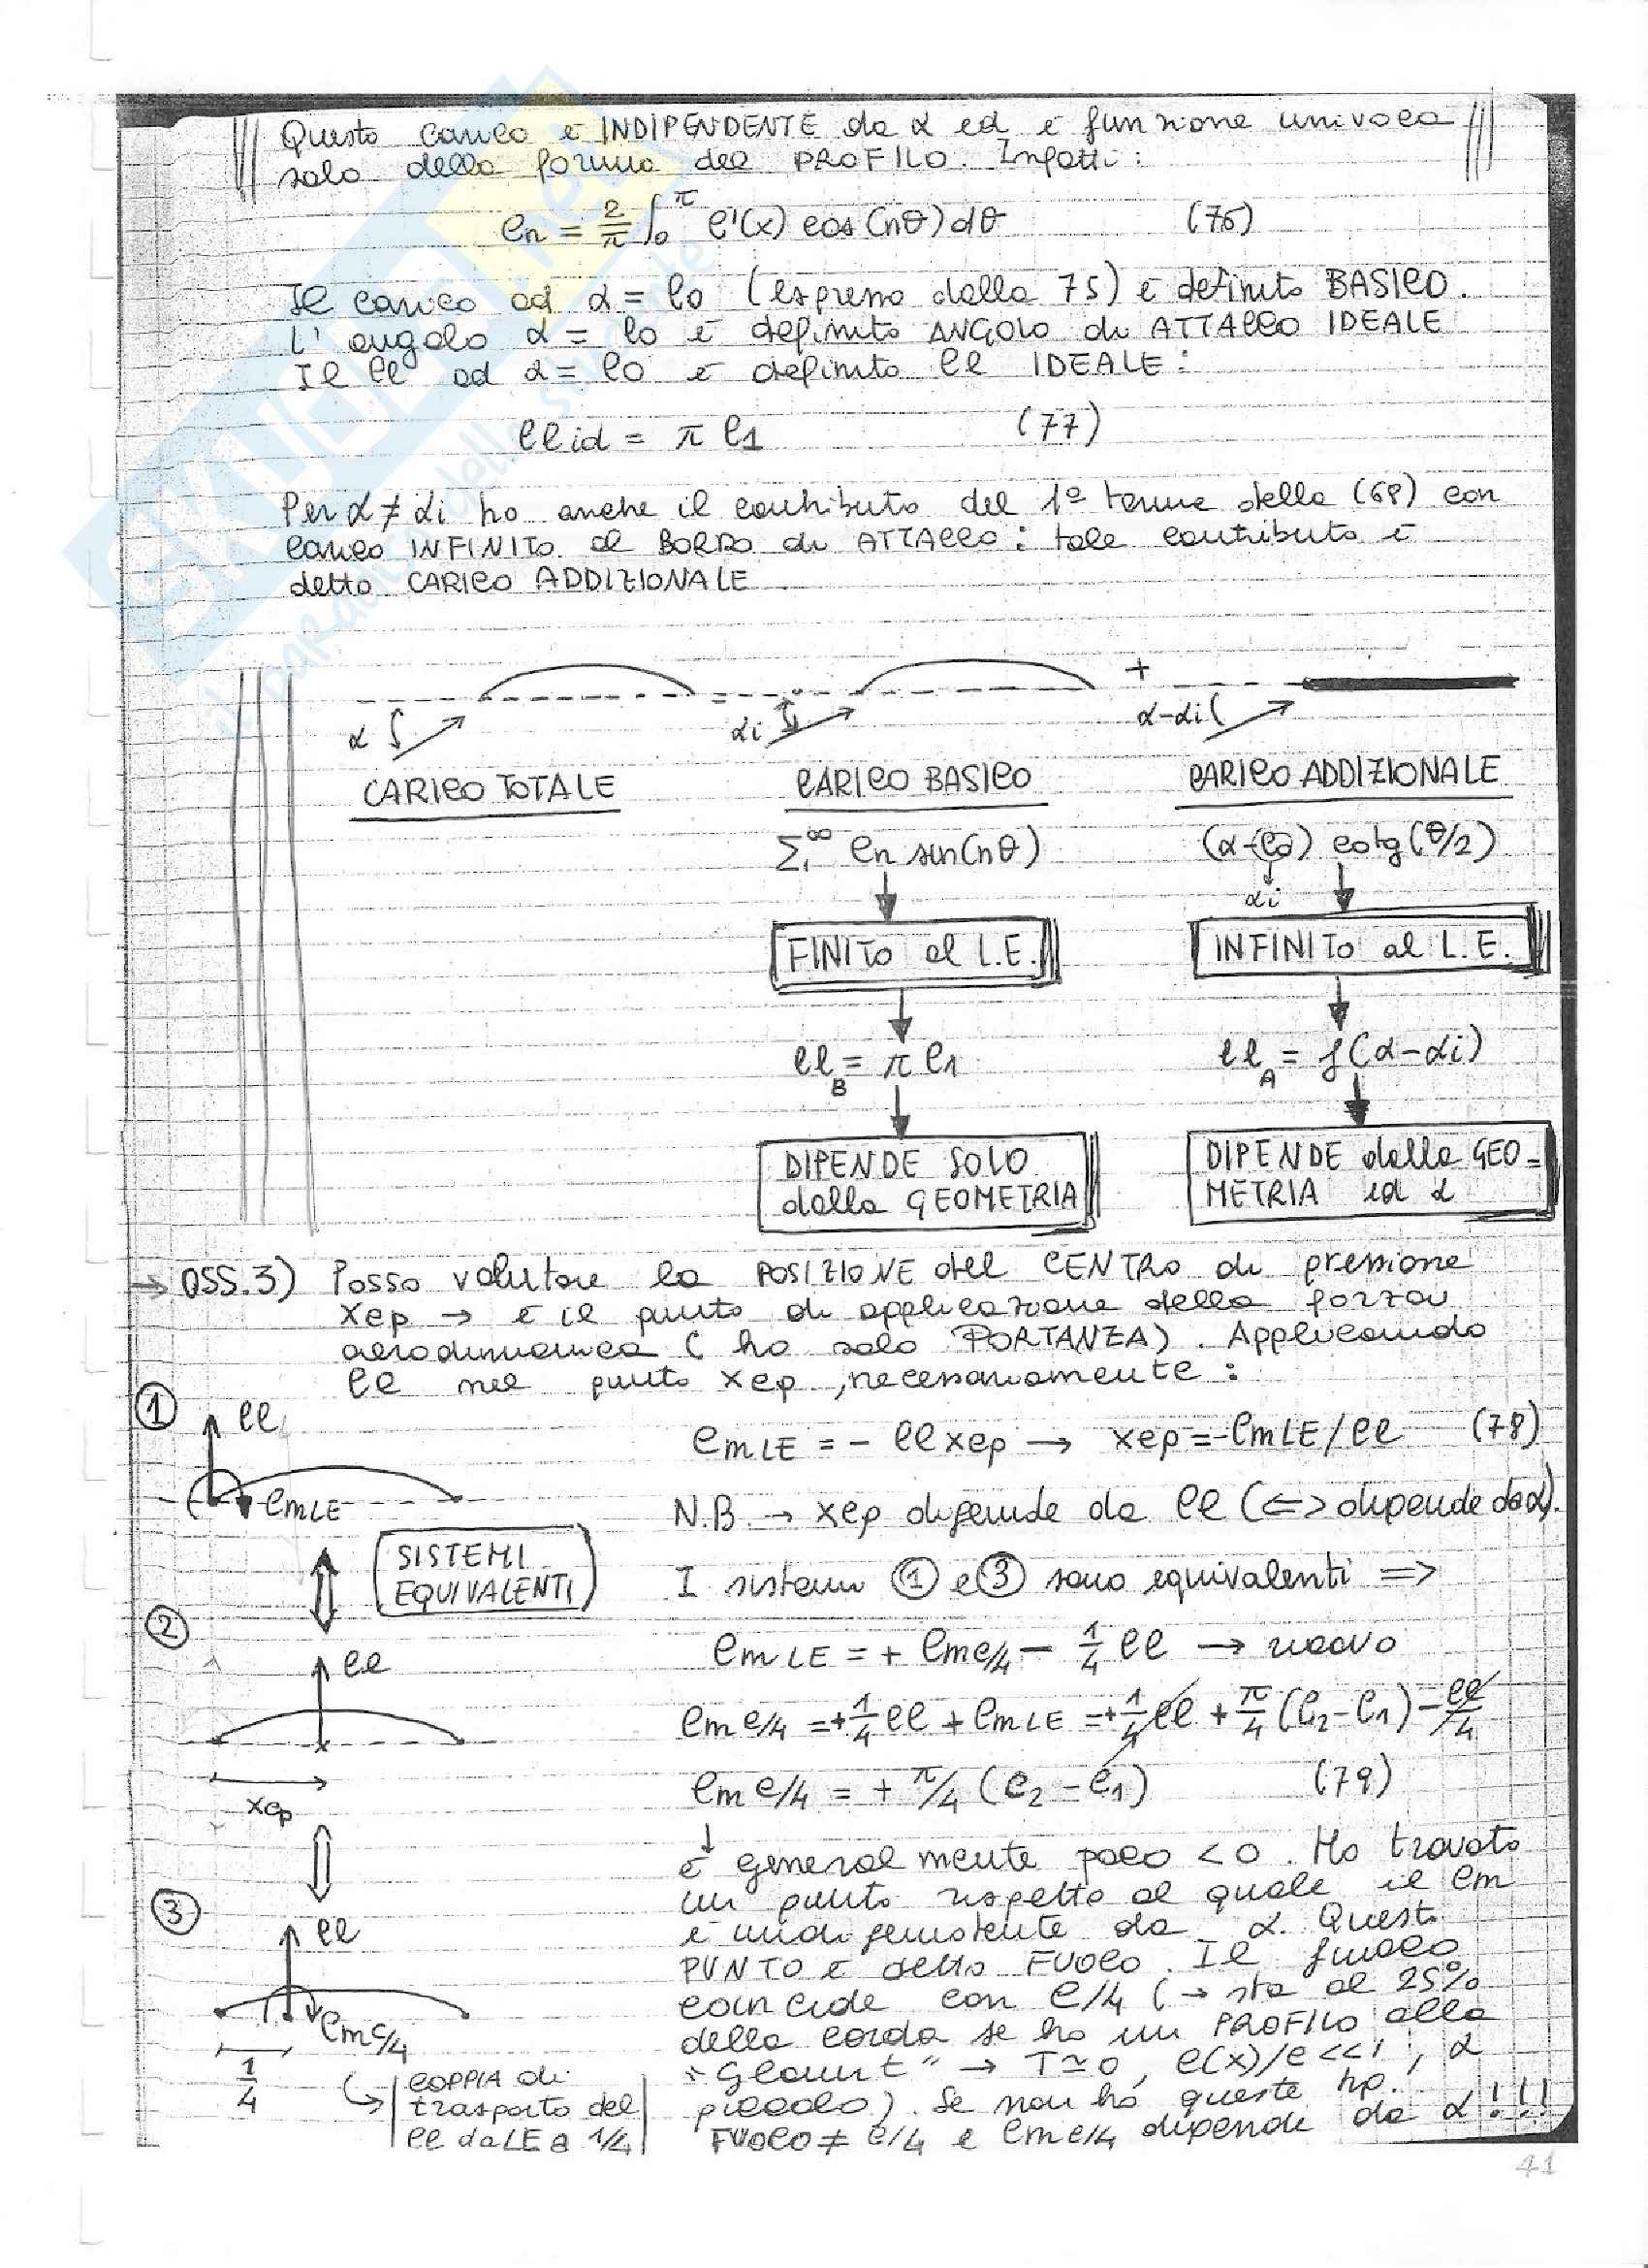 Questo carico è INDIPENDENTE da α ed è funzione univoca
solo della forma del PROFILO. Infatti:
Cn = 2/π ∫₀^π C'(x) cos(nθ)dθ (76)
Il carico ad α = C0 (espresso dalla 75) è definito BASICO.
L'angolo α = C0 è definito ANGOLO di ATTACCO IDEALE
Il Cl ad α = C0 è definito Cl IDEALE:
Cl id = π C1 (77)
Per α ≠ αi ho anche il contributo del 1° termine della (68) con
carico INFINITO al BORDO di ATTACCO: tale contributo è
detto CARICO ADDIZIONALE
α = αi + α-αi
CARICO TOTALE CARICO BASICO CARICO ADDIZIONALE
Σ₁^∞ Cn sin(nθ) (α-C0) cotg(θ/2)
αi
FINITO al L.E. INFINITO al L.E.
Cl_B = π C1 Cl_A = f(α-αi)
DIPENDE SOLO DIPENDE dalla GEO-
dalla GEOMETRIA METRIA ed α
→ OSS.3) Posso valutare la POSIZIONE del CENTRO di pressione
xcp → è il punto di applicazione della forza
aerodinamica (ho solo PORTANZA). Applicando
Cl nel punto xcp, necessariamente:
① Cl
CmLE
CmLE = - Cl xcp → xcp = -CmLE/Cl (78)
N.B. → xcp dipende da Cl (<=> dipende da α).
SISTEMI
EQUIVALENTI
I sistemi ① e ③ sono equivalenti =>
② Cl
xcp
CmLE = + Cmc/4 - 1/4 Cl → ricavo
Cmc/4 = +1/4 Cl + CmLE = +1/4 Cl + π/4 (C2-C1) - Cl/4
Cmc/4 = + π/4 (C2 - C1) (79)
↓
è generalmente poco <0. Ho trovato
un punto rispetto al quale il Cm
è indipendente da α. Questo
PUNTO è detto FUOCO. Il fuoco
coincide con C/4 (→ sta al 25%
della corda se ho un PROFILO alla
"Glauert" → T≃0, C(x)/C <<1, α
piccolo). Se non ho queste hp.
FUOCO ≠ C/4 e Cmc/4 dipende da α!!!
③ Cl
Cmc/4
1/4
COPPIA di
trasporto del
Cl da LE a 1/4
41